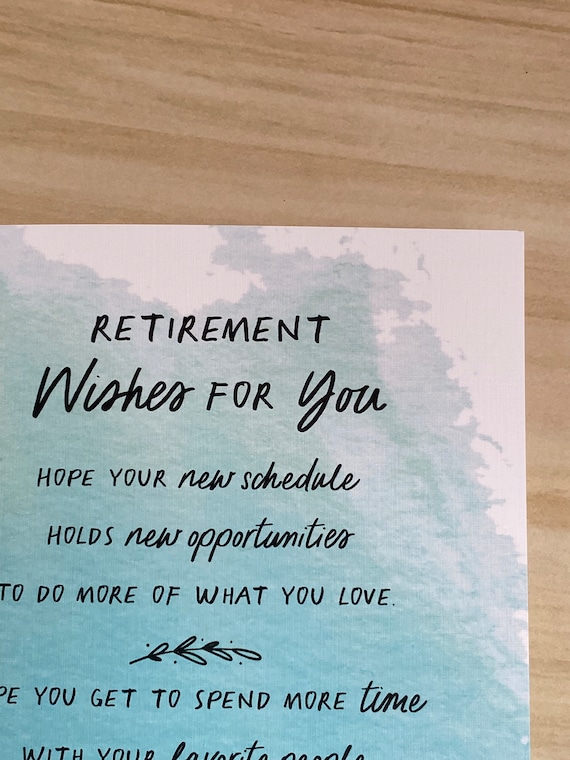 RETIREMENT
Wishes FOR You
HOPE YOUR new schedule
HOLDS new opportunities
TO DO MORE OF WHAT YOU LOVE.
PE YOU GET TO SPEND MORE time
WITH YOUR favorite people